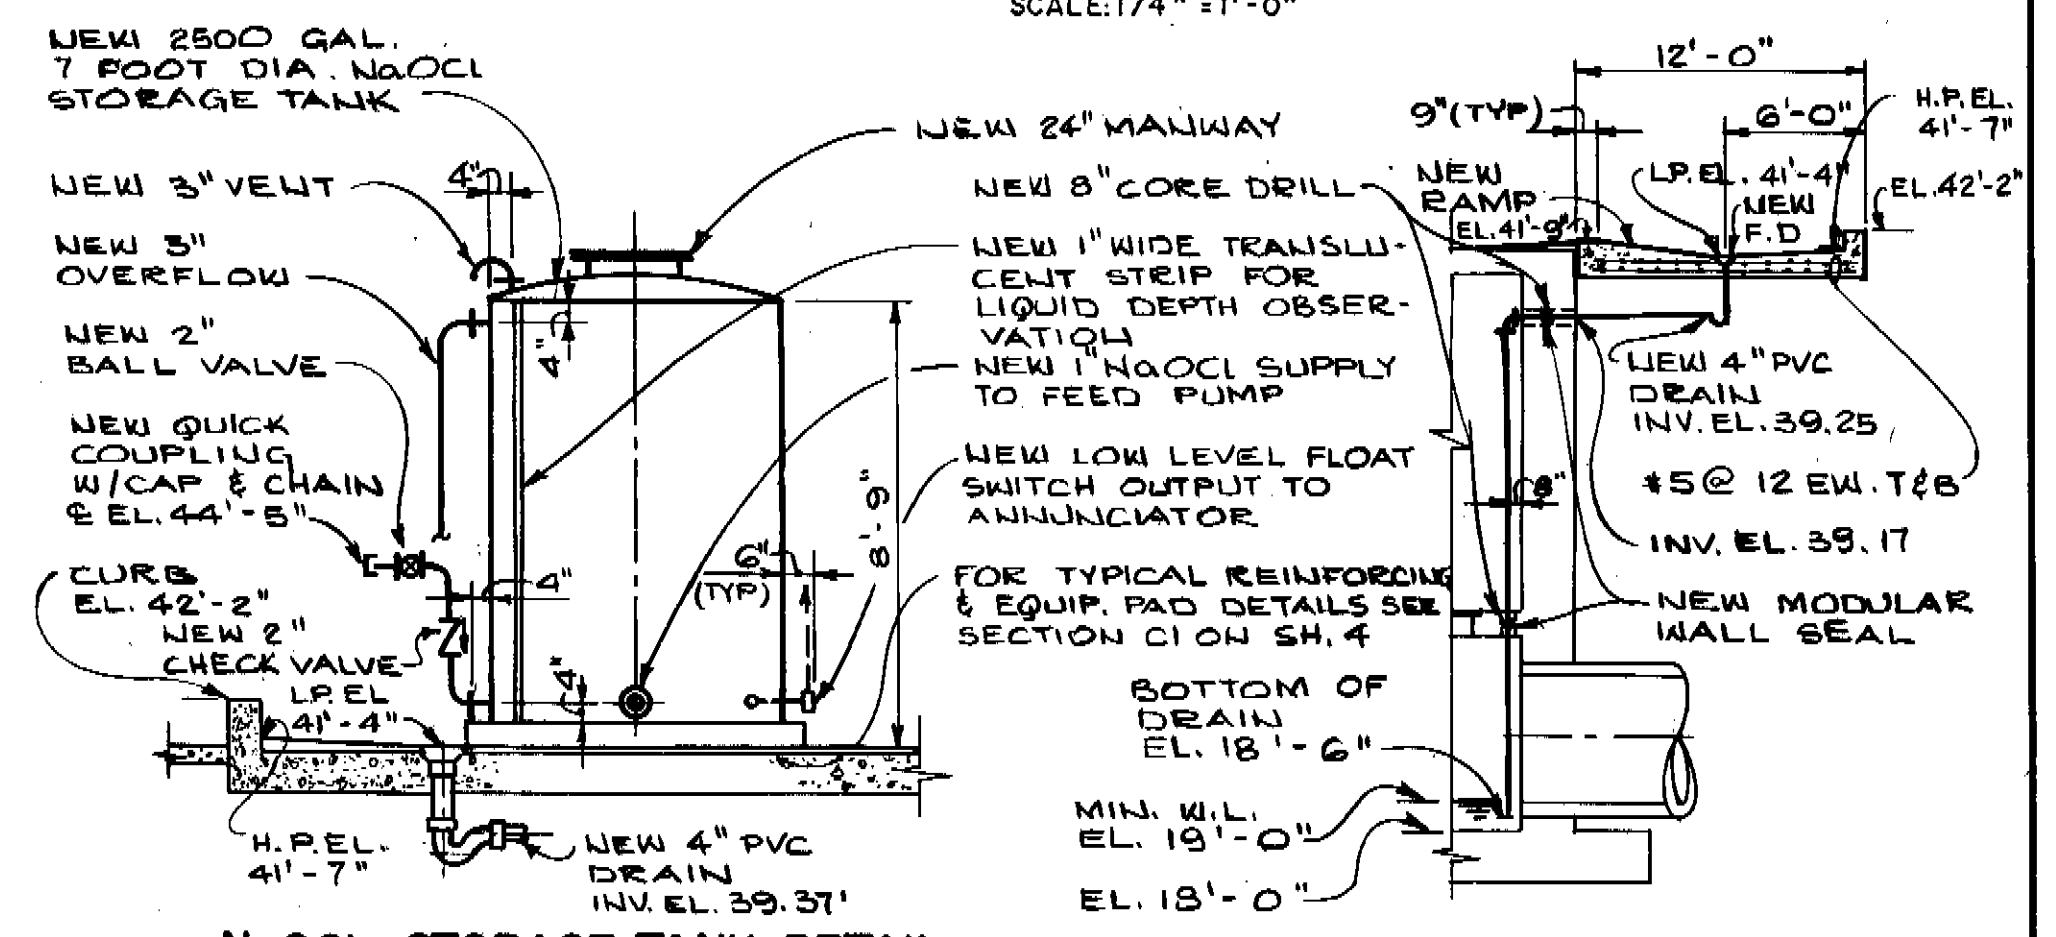 SCALE: 1/4" = 1'-0"
NEW 2500 GAL.
7 FOOT DIA. NaOCl
STORAGE TANK
NEW 3" VENT
4"
NEW 3"
OVERFLOW
NEW 2"
BALL VALVE
NEW QUICK
COUPLING
W/CAP & CHAIN
℄ EL. 44'-5"
CURB
EL. 42'-2"
NEW 2"
CHECK VALVE
L.P. EL
41'-4"
H.P. EL.
41'-7"
4"
4"
4"
6"
(TYP)
8'-9"
NEW 4" PVC
DRAIN
INV. EL. 39.37'
NEW 24" MANWAY
NEW 8" CORE DRILL
NEW 1" WIDE TRANSLU-
CENT STRIP FOR
LIQUID DEPTH OBSER-
VATION
NEW 1" NaOCl SUPPLY
TO FEED PUMP
NEW LOW LEVEL FLOAT
SWITCH OUTPUT TO
ANNUNCIATOR
FOR TYPICAL REINFORCING
& EQUIP. PAD DETAILS SEE
SECTION C1 ON SH. 4
BOTTOM OF
DRAIN
EL. 18'-6"
MIN. W.L.
EL. 19'-0"
EL. 18'-0"
12'-0"
9" (TYP)
6'-0"
H.P. EL.
41'-7"
NEW
RAMP
EL. 41'-9"
L.P. EL. 41'-4"
NEW
F.D
EL. 42'-2"
NEW 4" PVC
DRAIN
INV. EL. 39.25
#5 @ 12 EW. T&B
8"
INV. EL. 39.17
NEW MODULAR
WALL SEAL
STORAGE TANK DETAIL